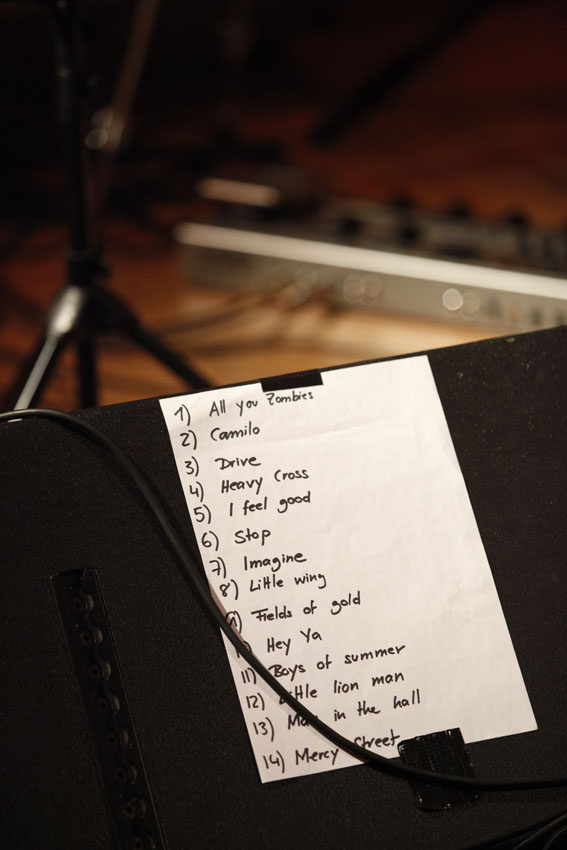 1) All you Zombies
2) Camilo
3) Drive
4) Heavy Cross
5) I feel good
6) Stop
7) Imagine
8) Little wing
9) Fields of gold
Hey Ya
11) Boys of summer
12) Little lion man
13) in the hall
14) Mercy Street